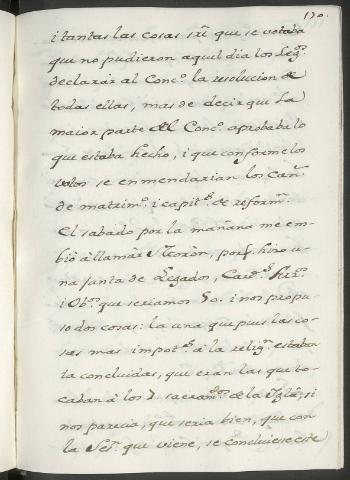 130.
i tantas las cosas sre. que se votaba
que no pudieron aquel dia los Leg.s
declarar al Conc.º la resolucion de
todas ellas, mas de decir que La
maior parte del Conc.º aprobaba lo
que estaba hecho, i que conforme los
votos se enmendarian los Cañ.
de matrim.º i capit.s de reform.n
El sabado por la mañana me em-
bió à llamar Moròn, porq. hizo u-
na junta de Legados, Card.s
i Ob.os que seriamos 50. i nos propu-
so dos cosas: la una que pues las co-
sas mas import.s à la relig.n estaban
ia concluidas, que eran las que to-
caban à los 7 sacram.tos de la Igl.ª, si
nos parecia, que seria bien, que con
la Ses.n que viene, se concluiese este